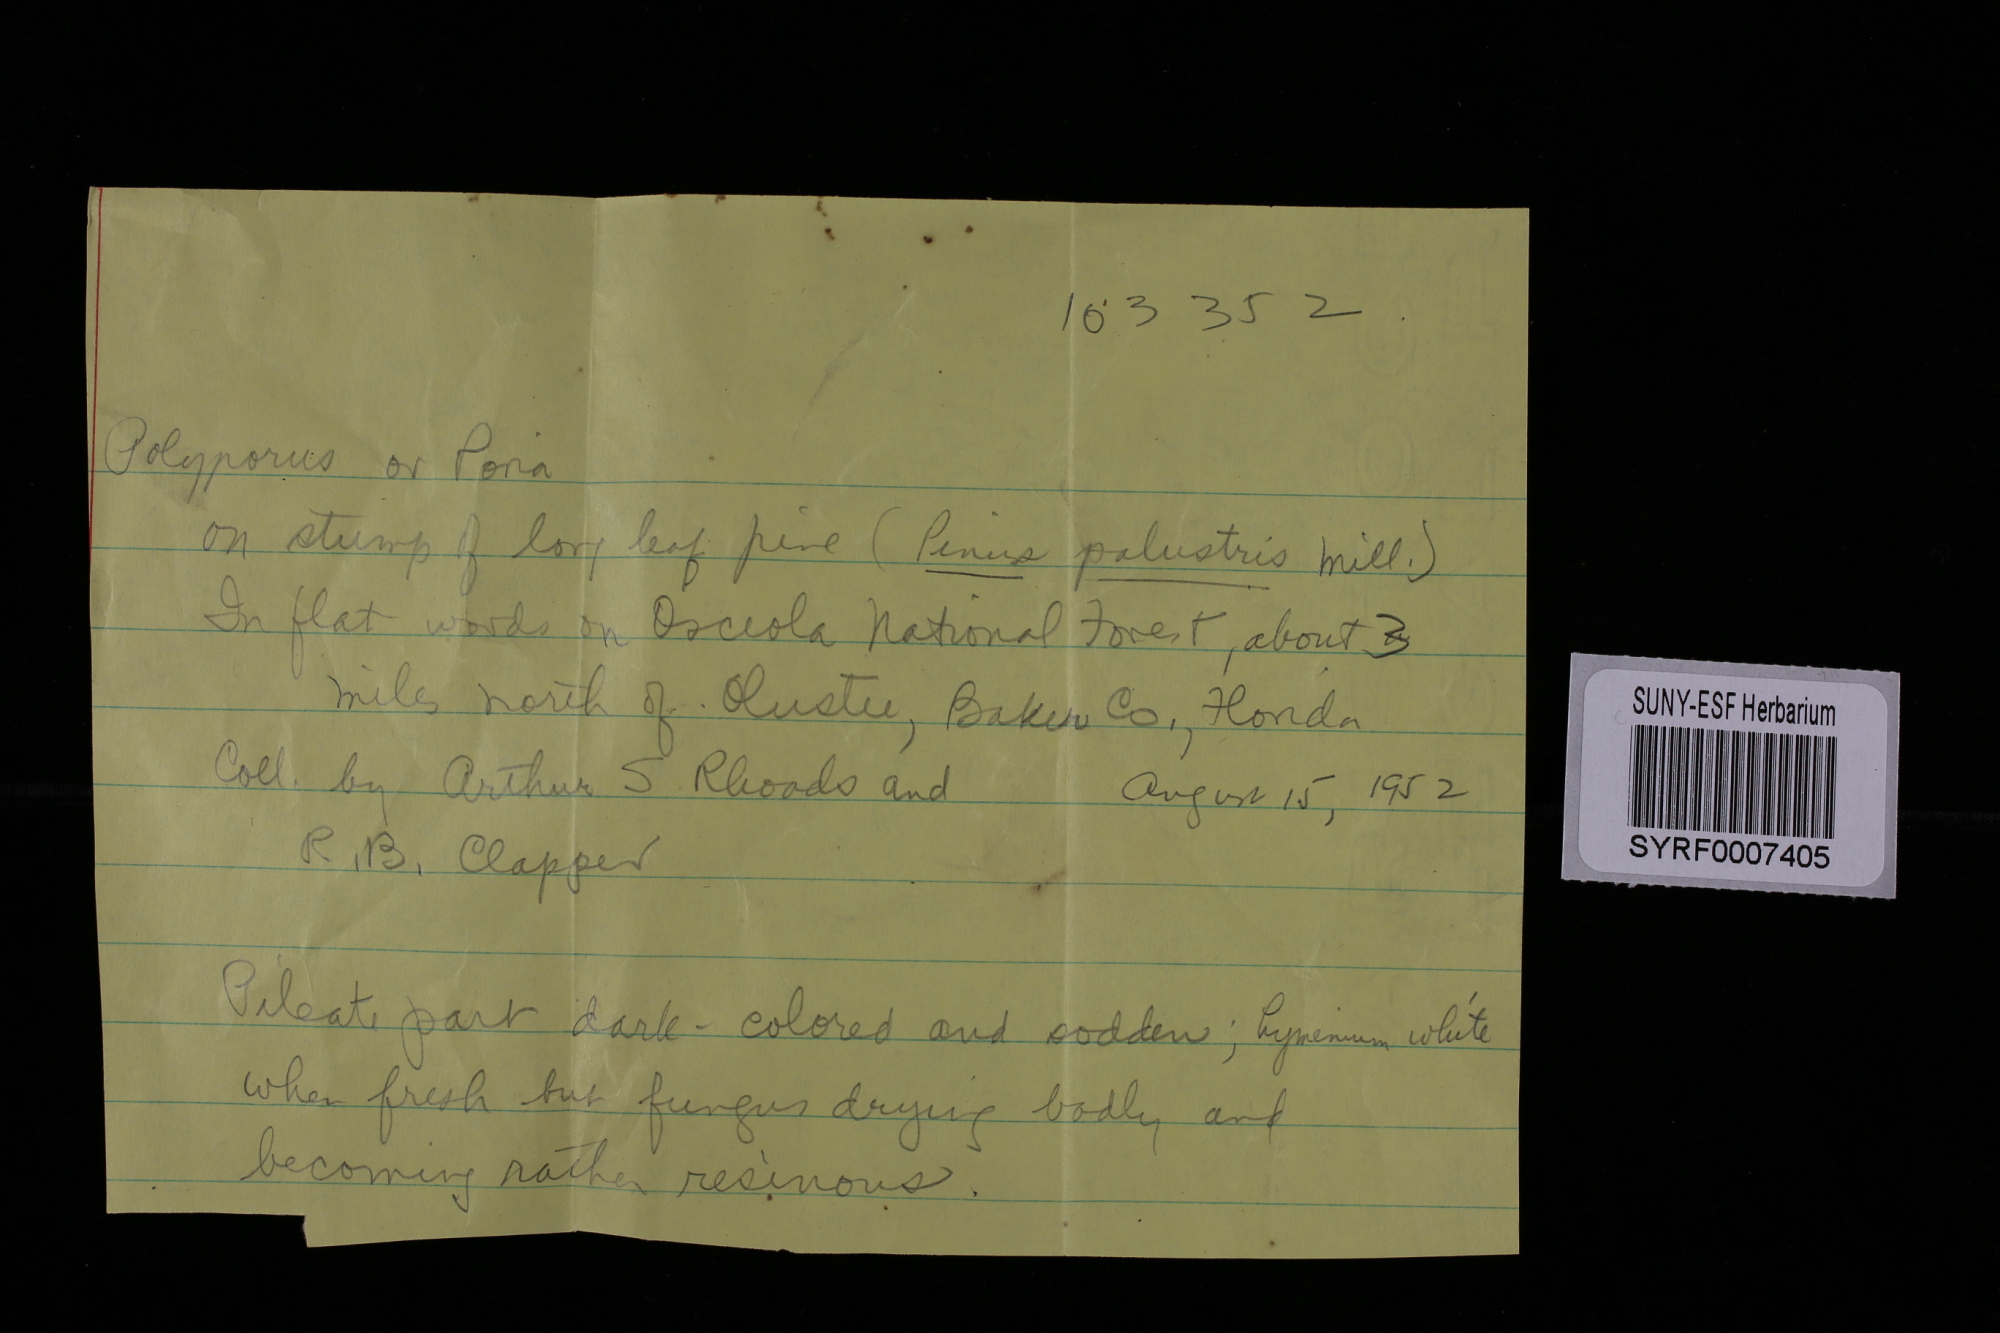 103352
Polyporus or Poria
on stump of long leaf pine (Pinus palustris Mill.)
In flat woods on Osceola National Forest, about 3
miles north of Olustee, Baker Co., Florida
Coll. by Arthur S Rhoads and August 15, 1952
R.B. Clapper
Pileate part dark-colored and sodden; hymenium white
when fresh but fungus drying badly and
becoming rather resinous.
SUNY-ESF Herbarium
SYRF0007405